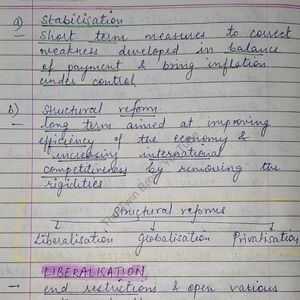 a) Stabilisation
- Short term measures to correct
weakness developed in balance
of payment & bring inflation
under control
b) Structural reform
- long term aimed at improving
efficiency of the economy &
increasing international
competitiveness by removing the
rigidities
Structural reforms
Liberalisation Globalisation Privatisation
LIBERALISATION
→ end restrictions & open various